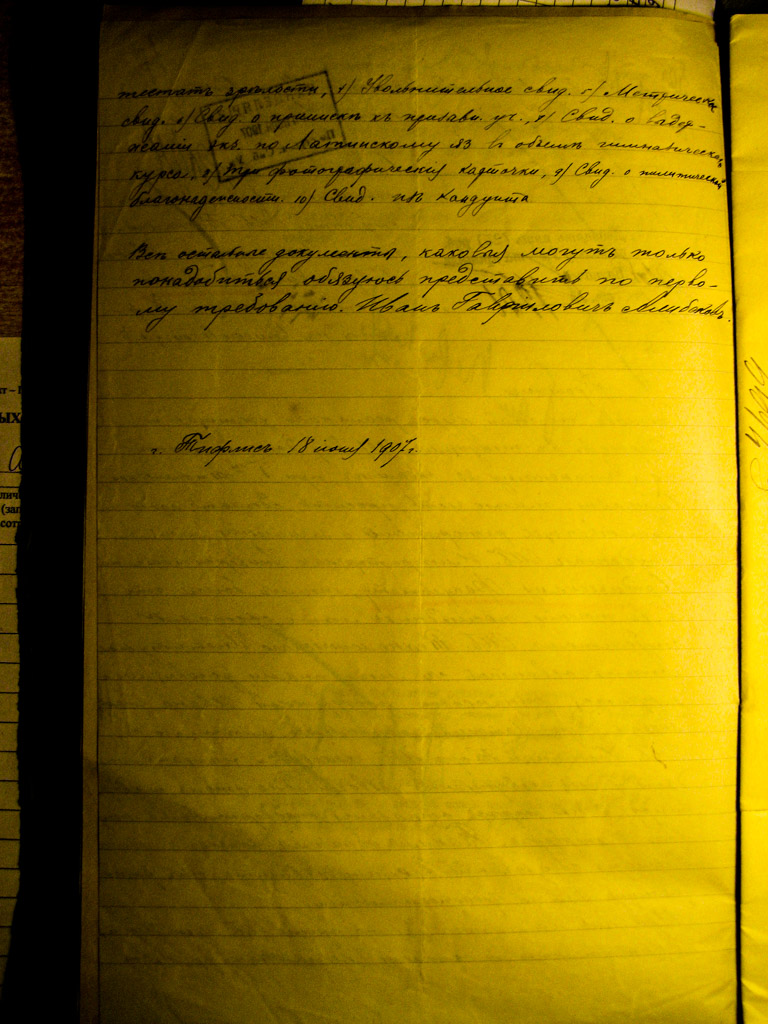 тестатъ зрѣлости, 4) Увольнительное свид. 5) Метрическое
свид. 6) Свид. о припискѣ къ призывн. уч., 7) Свид. о выдер-
жаніи экз. по Латинскому яз въ объемѣ гимназическаго
курса, 8) три фотографическія карточки, 9) Свид. о политической
благонадежности. 10) Свид. изъ кондуита
Всѣ остальные документы, каковыя могутъ только
понадобиться обязуюсь представить по перво-
му требованію. Иванъ Гавріиловичъ Алибековъ.
г. Тифлисъ 18 іюня 1907 г.